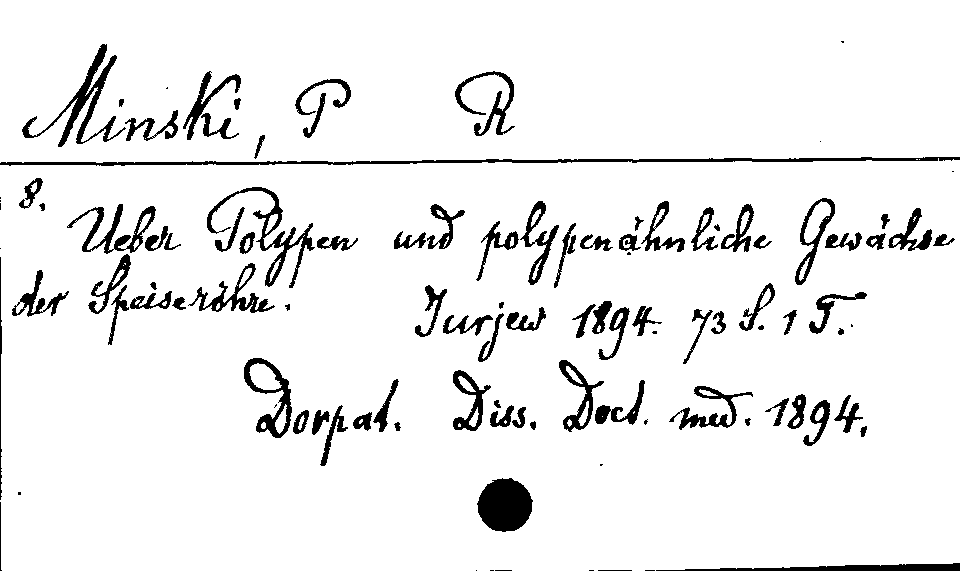 Minski, P R
8.
Ueber Polypen und polypenähnliche Gewächse
der Speiseröhre.
Jurjew 1894. 73 S. 1 T.
Dorpat. Diss. Doct. med. 1894.